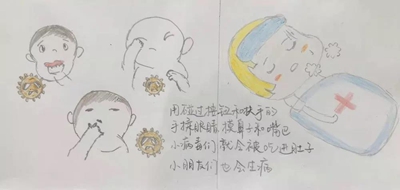 用碰过按钮和扶手的
手揉眼睛摸鼻子和嘴巴
小病毒们就会被吃进肚子
小朋友们也会生病